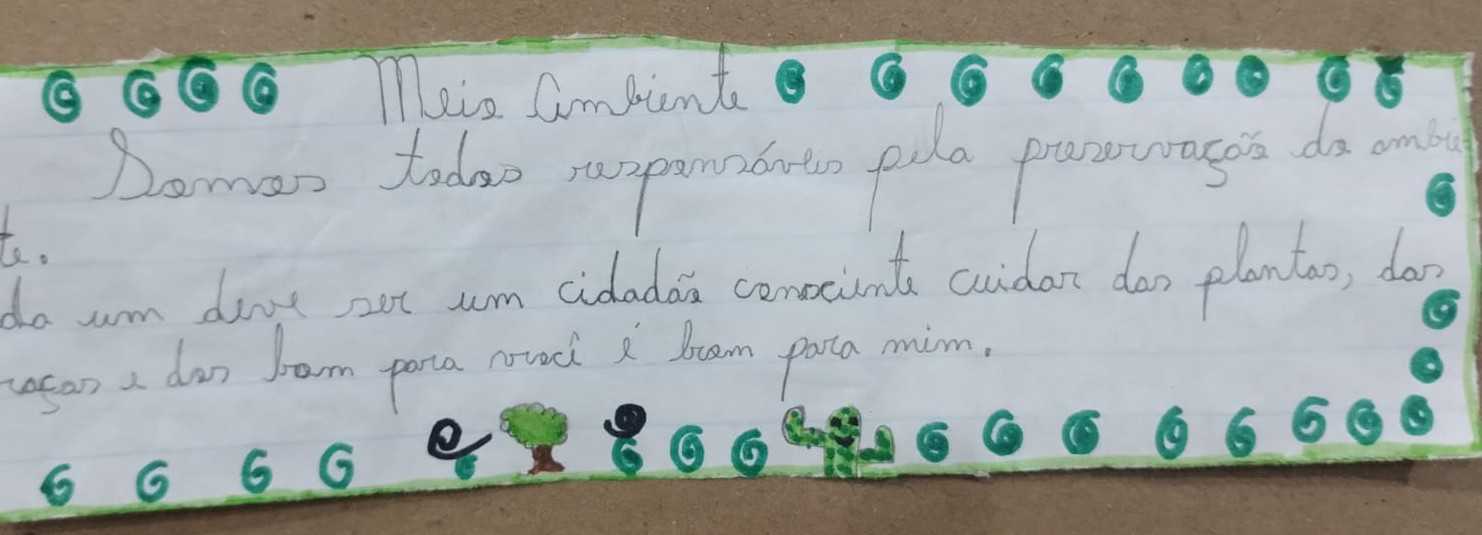 Meio Ambiente
Somos todos responsáveis pela preservação do ambie
te.
da um deve ser um cidadão consciente cuidar das plantas, das
raças e das bom para você é bom para mim.